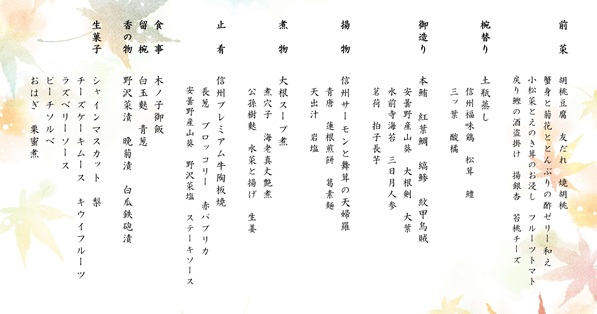 前　菜
胡桃豆腐　友だれ　焼胡桃
蟹身と菊花ととんぶりの酢ゼリー和え
小松菜とえのき茸のお浸し　フルーツトマト
戻り鰹の酒盗掛け　揚銀杏　苔桃チーズ
椀替り
土瓶蒸し
信州福味鶏　松茸　鱧
三ッ葉　酸橘
御造り
本鮪　紅葉鯛　縞鯵　紋甲烏賊
安曇野産山葵　大根剣　大葉
水前寺海苔　三日月人参
茗荷　拍子長芋
揚　物
信州サーモンと舞茸の天婦羅
青唐　蓮根煎餅　葛素麺
天出汁　岩塩
煮　物
大根スープ煮
煮穴子　海老真丈艶煮
公孫樹麩　水菜と揚げ　生姜
止　肴
信州プレミアム牛陶板焼
長葱　ブロッコリー　赤パプリカ
安曇野産山葵　野沢菜塩　ステーキソース
食　事
木ノ子御飯
留　椀
白玉麩　青葱
香の物
野沢菜漬　晩菊漬　白瓜鉄砲漬
生菓子
シャインマスカット　梨
チーズケーキムース　キウイフルーツ
ラズベリーソース
ピーチソルベ
おはぎ　栗蜜煮